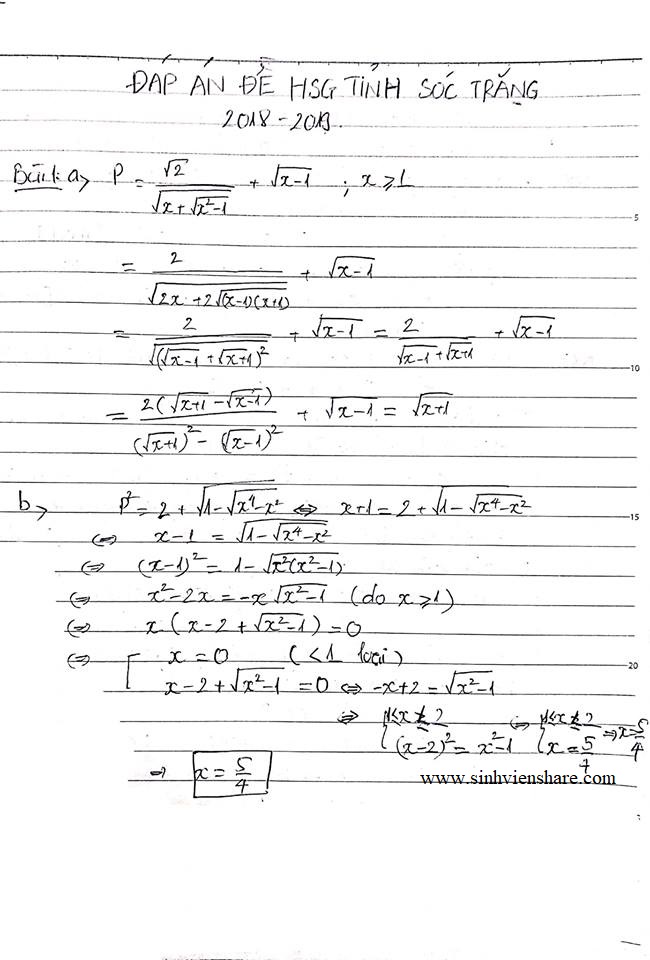 ĐÁP ÁN ĐỀ HSG TỈNH SÓC TRĂNG
2018-2019.
Bài 1: a> P = √2/√(x+√(x²-1)) + √(x-1) ; x ≥ 1
= 2/√(2x+2√((x-1)(x+1))) + √(x-1)
= 2/√((√(x-1)+√(x+1))²) + √(x-1) = 2/(√(x-1)+√(x+1)) + √(x-1)
= 2(√(x+1)-√(x-1))/((√(x+1))²-(√(x-1))²) + √(x-1) = √(x+1)
b> P² = 2 + √(1-√(x⁴-x²)) ⇔ x+1 = 2 + √(1-√(x⁴-x²))
⇔ x-1 = √(1-√(x⁴-x²))
⇔ (x-1)² = 1-√(x²(x²-1))
⇔ x²-2x = -x√(x²-1) (do x ≥ 1)
⇔ x(x-2+√(x²-1)) = 0
⇔ [ x = 0 (<1 loại)
x-2+√(x²-1) = 0 ⇔ -x+2 = √(x²-1)
⇔ { 1≤x≤2 ⇔ { 1≤x≤2 ⇒ x=5/4
(x-2)² = x²-1 x = 5/4
⇒ x = 5/4
www.sinhvienshare.com
5
10
15
20
25